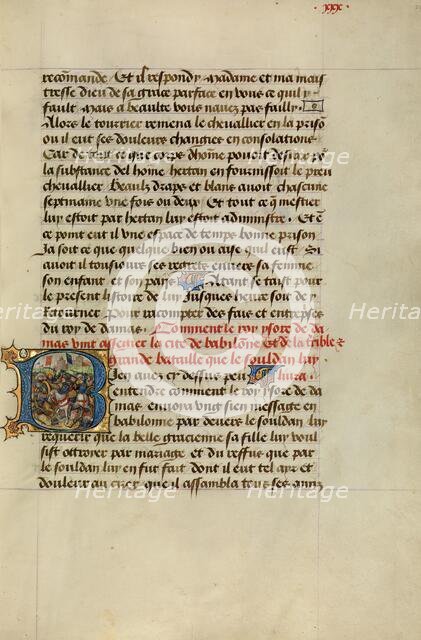 xxx.
recomande. Et il respondy Madame et ma mais
tresse dieu de sa grace parface en vous ce quil y
fault Mais a beaulte vous navez pas failly.
Allors le tourrier remena le chevallier en la priso
ou il eut ses douleurs changies en consolations
Car de tout ce que corps dhome pouoit desirer po
la substance del home hertan en fournissoit le preu
chevallier Beaulz draps et blans avoit chascune
septmaine une fois ou deux Et tout ce q mestier
luy estoit par hertan luy estoit administre. Et e
ce point eut il une espace de temps bonne prison
Ja soit ce que quelque bien ou aise quil eust Si
avoit il tousiours ses regrets envers sa femme
son enfant et son pays Atant se taist pour
le present listoire de luy jusques heure soit de
Retourner Pour racompter des fais et entreprses
du roy de damas Comment le roy ysore de da
mas vint asseiller la cite de babilone Et de la terrible
grande bataille que le souldan luy
livra.
Bien avez cy dessus peu
entendre comment le roy ysore de da
mas envoya ung sien message en
babilonne par devers le souldan luy
requerir que la belle gracienne sa fille luy voul
sist ottroyer par mariage et du reffus que par
le souldan luy en fut fait dont il eut tel ayr et
douleur au cuer que il assembla tous ses amiz
Heritage
Heritage
Heritage
Heritage
Heritage
Heritage
Heritage